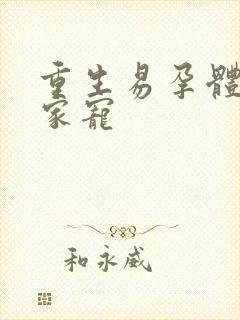 重生易孕體
家寵
和永威